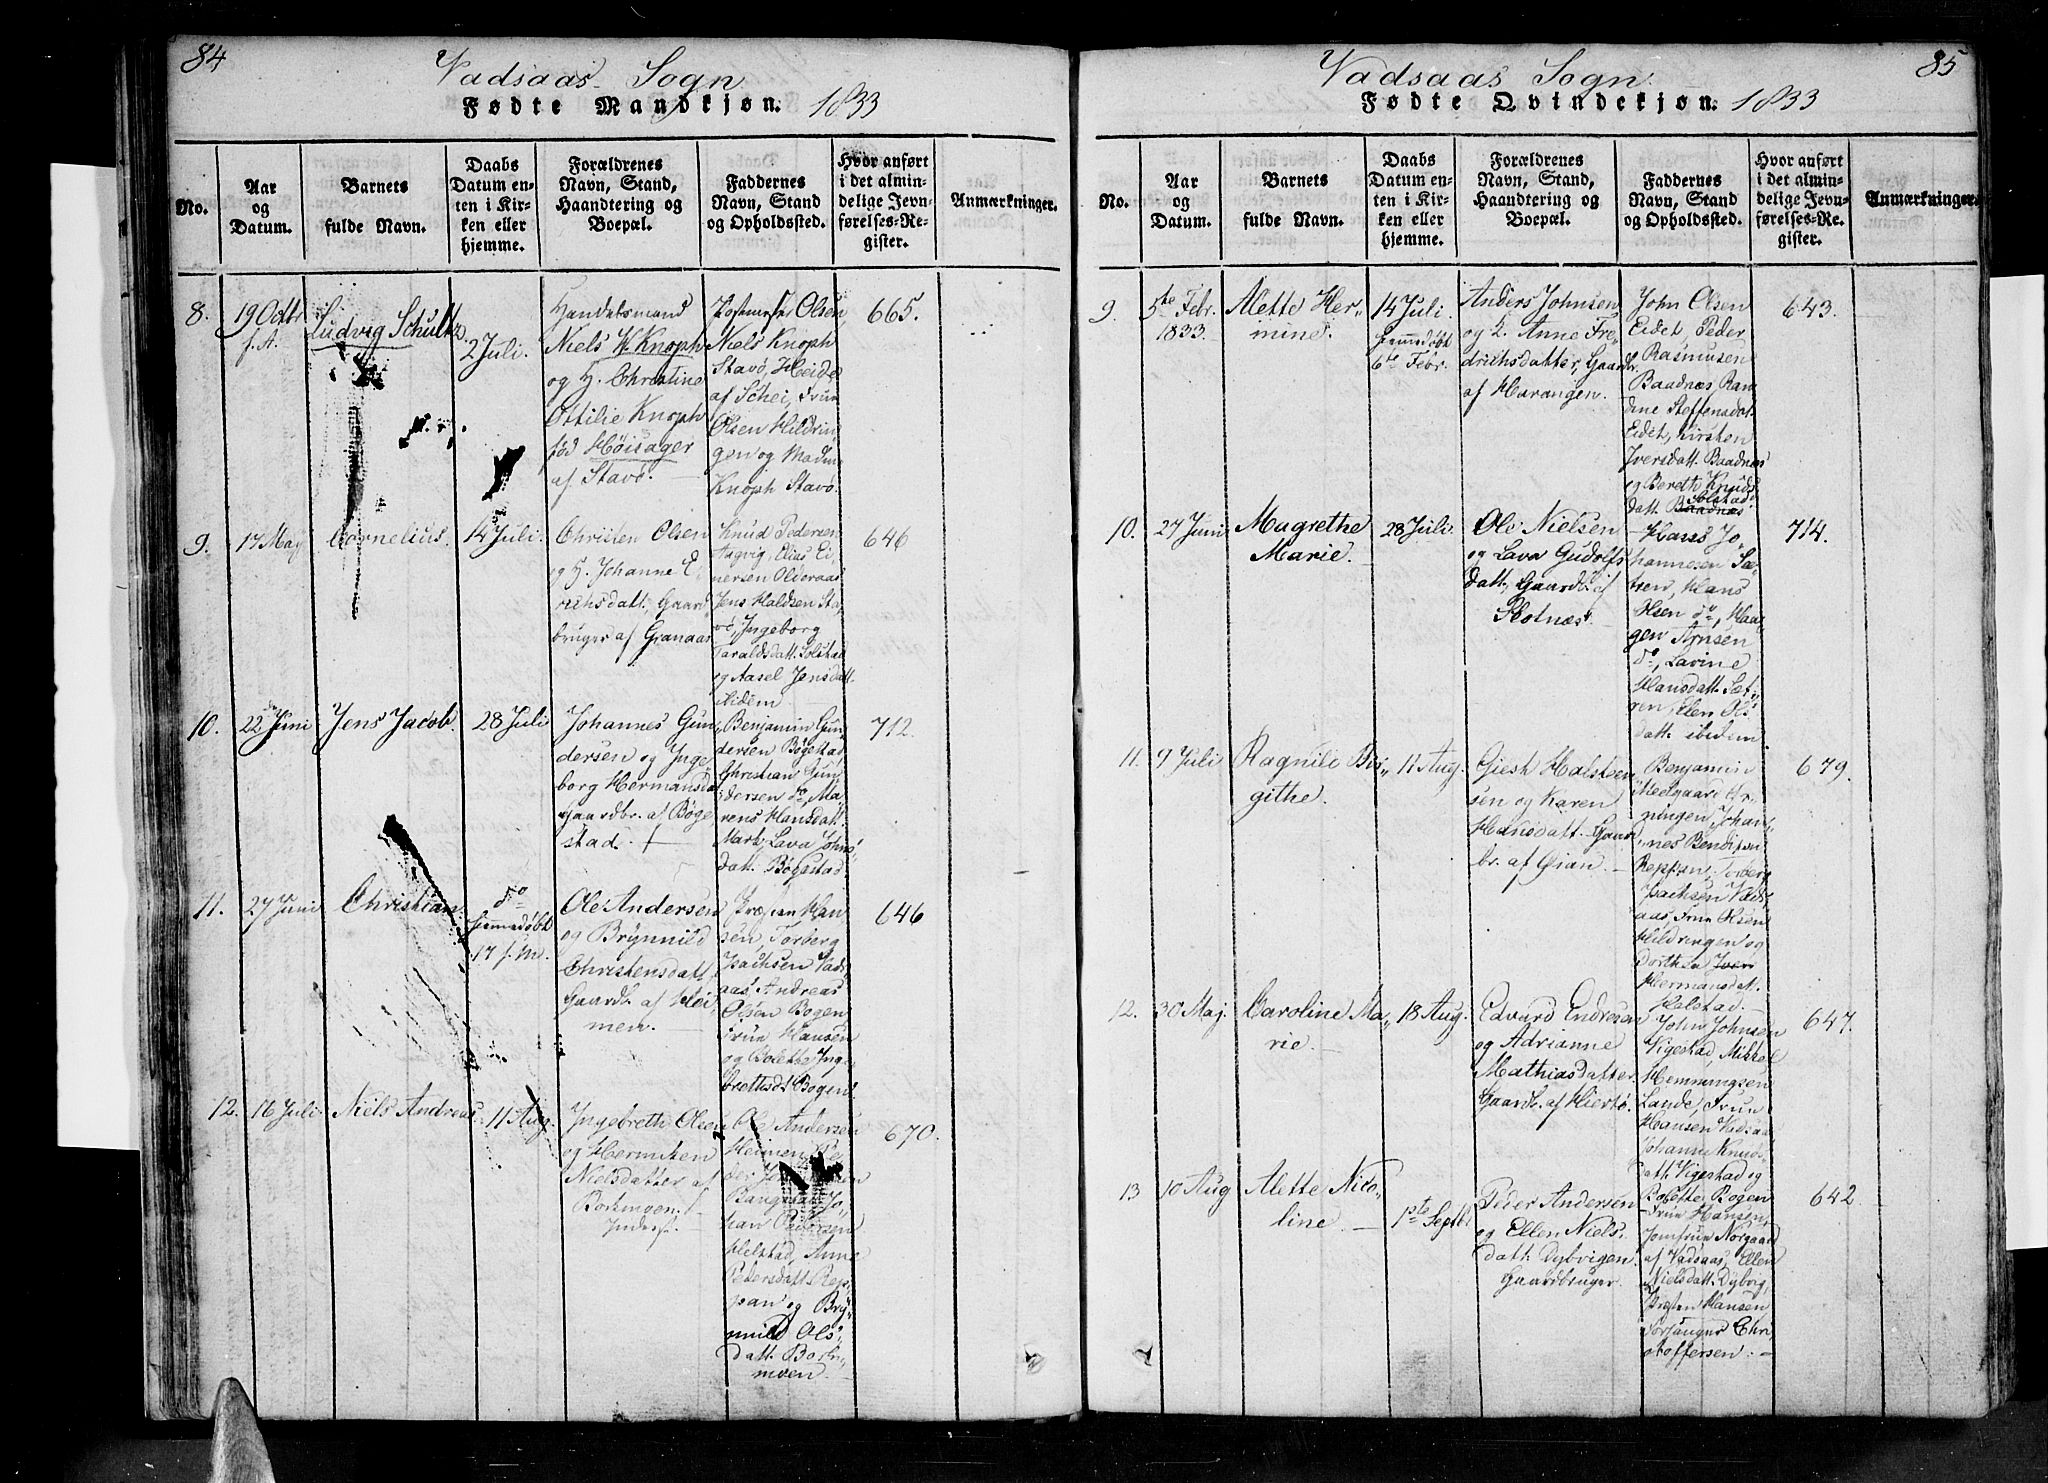 84
Vadsaas Sogn
Fødte Mandkjøn. 1833
No.
Aar
og
Datum.
Barnets
fulde Navn.
Daabs
Datum en-
ten i Kir-
ken eller
hjemme.
Forældrenes
Navn, Stand,
Haandtering og
Boepæl.
Faddernes
Navn, Stand
og Opholdssted.
Hvor anført
i det almin-
delige Jevn-
førelses-Re-
gister.
Anmærkninger.
8.
19 Octbr
f. A.
Ludvig Schultz.
2 Juli.
Handelsmand
Niels W. Knoph
og H. Christine
Ottilie Knoph
fød Høisager
af Stavø.
Olsen,
Niels Knoph
Stavø, Heide
af Schei, Frue
Olsen Hildrin-
gen og Madm
Knoph Stavø.
665.
9.
17 May
Cornelius.
14 Juli.
Christen Olsen
og H. Johanne E-
richsdatt, Gaard
bruger af Granaas
Knud Pedersen
Aagvig Elias Ei-
nersen Olderaas
Jens Haldsen Sta-
vø, Ingeborg
Taraldsdatt. Solstad
og Aasel Jensdatt
ibidem
646
10.
22 Juni
Jens Jacob.
28 Juli
Johannes Gun-
dersen og Inge-
borg Hermansda
Gaardbr. af Bøge-
stad.
Benjamin Gun-
dersen Bøgestad,
Christian Gun-
dersen do, Ma-
rens Hansdatt
Mark, Lava Johns-
datt. Bøgestad
712.
11.
27 Juni
Christian.
do
hjemmedøbt
17 f. M.
Ole Andersen
og Brynnild
Christensdatt
Gaardb. af Hei-
men.
Præsten Han-
sen, Torberg
Isachsen Vads-
aas, Andreas
Olsen Bogen
Frue Hansen
og Bolette Inge-
brettsdt Bogen.
646
12.
16 Juli.
Niels Andreas.
11 Aug.
Ingebreth Olsen
og Hermiken
Nielsdatter af
Inderst.
Ole Andersen
Heimen, Pe-
der
han Pedersen
Helstad, Anne
Pedersdatt Rep-
pan og Bry-
nnild Ols-
datt. Bork-
moen.
670.
85
Vadsaas Sogn.
Fødte Qvindekjøn. 1833
No.
Aar
og
Datum.
Barnets
fulde Navn.
Daabs
Datum en-
ten i Kir-
ken eller
hjemme.
Forældrenes
Navn, Stand,
Haandtering og
Boepæl.
Faddernes
Navn, Stand
og Opholdssted.
Hvor anført
i det almin-
delige Jevn-
førelses-Re-
gister.
Anmærkninger.
9.
5te Febr.
1833.
Alette Her-
mine.
14 Juli.
hjemmedøbt
6te Febr.
Anders Johnsen,
og H. Anne Fre-
drichsdatter, Gaardb.
af Harangen.
John Olsen
Eidet, Peder
Rasmusen
Baadnæs, Ran-
dine Steffensdat.
Eidet, Kirsten
Iversdatt. Baadnæs
og Bereth Knuds-
datt. Baadnæs Solstad
643.
10.
27 Juni
Magrethe
Marie.
28 Juli.
Ole Nielsen
og Lava Gudolfs
datt, Gaardb. af
Slotnæs.
Hans Jo-
hannesen Sæ-
tren, Hans
Olsen do, Haa-
gen Arnsen
do, Lavine
Hansdatt. Sæt-
ren, Ellen Ols-
datt. ibidem.
714.
11.
9 Juli
Ragnile Bri-
githe.
11 Aug.
Giest Halsteen-
sen og Karen
Hansdatt. Gaard
br. af Øian.
Benjamin
Meelgaard
Johan-
nes Bendixen
Reppen, Torberg
Isachsen Vads-
aas, Frue Olsen
Hildringen og
Dorthea Iver
Hermansdatt.
Helstad.
679.
12.
30 Maj.
Caroline Ma-
rie.
18 Aug.
Edvard Endresen
og Adrianne
Mathiasdatter
Gaardb. af Hiertø.
John Johnsen
Vigestad, Mikkel
Hemmingsen
Lande, Frue
Hansen Vadsaas
Johanne Knuds-
datt. Vigestad og
Bolette Bogen
647.
13
10 Aug
Alette Nico-
line.
1ste Septbr
Peder Andersen
og Ellen Niels-
datt. Dybvigen
Gaardbruger.
Frue Hansen,
Jomfrue Norgaard
af Vadsaas, Ellen
Nielsdatt. Dybvig,
Præsten Hansen
Forsanger Chri-
stoffersen.
642